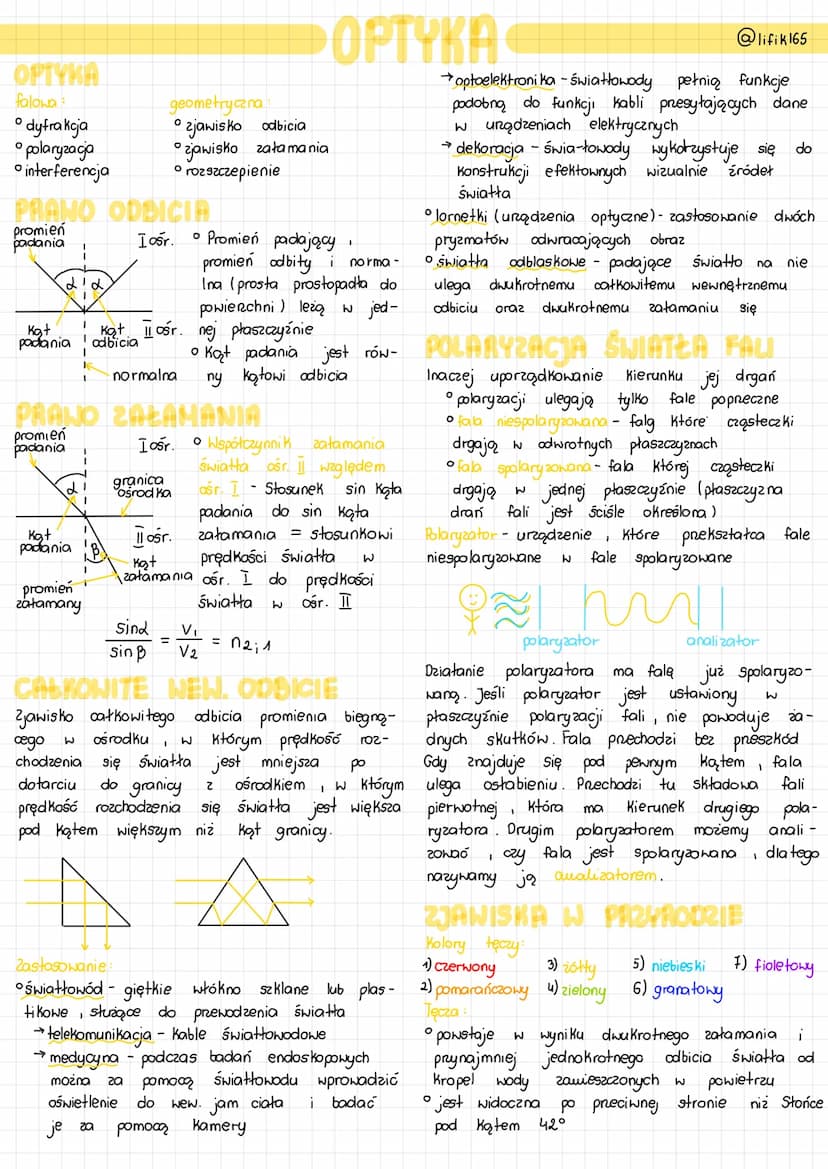 OPTYKA
@lifik165
OPTYKA
falowa:
° dyfrakcja
° polaryzacja
° interferencja
geometryczna:
° zjawisko odbicia
° zjawisko załamania
° rozszczepienie
PRAWO ODBICIA
promień
padania
I ośr.
α α
kąt
padania
kąt
odbicia
II ośr.
normalna
° Promień padający,
promień odbity i norma-
lna (prosta prostopadła do
powierzchni) leżą w jed-
nej płaszczyźnie
° Kąt padania jest rów-
ny kątowi odbicia
PRAWO ZAŁAMANIA
promień
padania
I ośr.
α
granica
ośrodka
kąt
padania
II ośr.
β
kąt
załamania
promień
załamany
° Współczynnik załamania
światła ośr. II względem
ośr. I - Stosunek sin kąta
padania do sin kąta
załamania = stosunkowi
prędkości światła w
ośr. I do prędkości
światła w ośr. II
sinα / sinβ = V₁ / V₂ = n₂;₁
CAŁKOWITE WEW. ODBICIE
Zjawisko całkowitego odbicia promienia biegną-
cego w ośrodku, w którym prędkość roz-
chodzenia się światła jest mniejsza po
dotarciu do granicy z ośrodkiem, w którym
prędkość rozchodzenia się światła jest większa
pod kątem większym niż kąt granicy.
Zastosowanie:
° światłowód - giętkie włókno szklane lub plas-
tikowe, służące do przewodzenia światła
→ telekomunikacja - kable światłowodowe
→ medycyna - podczas badań endoskopowych
można za pomocą światłowodu wprowadzić
oświetlenie do wew. jam ciała i badać
je za pomocą kamery
→ optoelektronika - światłowody pełnią funkcje
podobną do funkcji kabli przesyłających dane
w urządzeniach elektrycznych
→ dekoracja - świa-łowody wykorzystuje się do
konstrukcji efektownych wizualnie źródeł
światła
° lornetki (urządzenia optyczne) - zastosowanie dwóch
pryzmatów odwracających obraz
° światła odblaskowe - padające światło na nie
ulega dwukrotnemu całkowitemu wewnętrznemu
odbiciu oraz dwukrotnemu załamaniu się
POLARYZACJA ŚWIATŁA FALI
Inaczej uporządkowanie kierunku jej drgań
° polaryzacji ulegają tylko fale poprzeczne
° fala niespolaryzowana - falą które cząsteczki
drgają w odwrotnych płaszczyznach
° fala spolaryzowana - fala której cząsteczki
drgają w jednej płaszczyźnie (płaszczyzna
drań fali jest ściśle określona)
Polaryzator - urządzenie, które przekształca fale
niespolaryzowane w fale spolaryzowane
polaryzator
analizator
Działanie polaryzatora ma falę już spolaryzo-
waną. Jeśli polaryzator jest ustawiony w
płaszczyźnie polaryzacji fali, nie powoduje ża-
dnych skutków. Fala przechodzi bez przeszkód
Gdy znajduje się pod pewnym kątem, fala
ulega osłabieniu. Przechodzi tu składowa fali
pierwotnej, która ma kierunek drugiego pola-
ryzatora. Drugim polaryzatorem możemy anali-
zować, czy fala jest spolaryzowana, dlatego
nazywamy ją analizatorem.
ZJAWISKA W PRZYRODZIE
Kolory tęczy:
1) czerwony 3) żółty 5) niebieski 7) fioletowy
2) pomarańczowy 4) zielony 6) granatowy
Tęcza:
° powstaje w wyniku dwukrotnego załamania i
przynajmniej jednokrotnego odbicia światła od
kropel wody zawieszczonych w powietrzu
° jest widoczna po przeciwnej stronie niż Słońce
pod kątem 42°